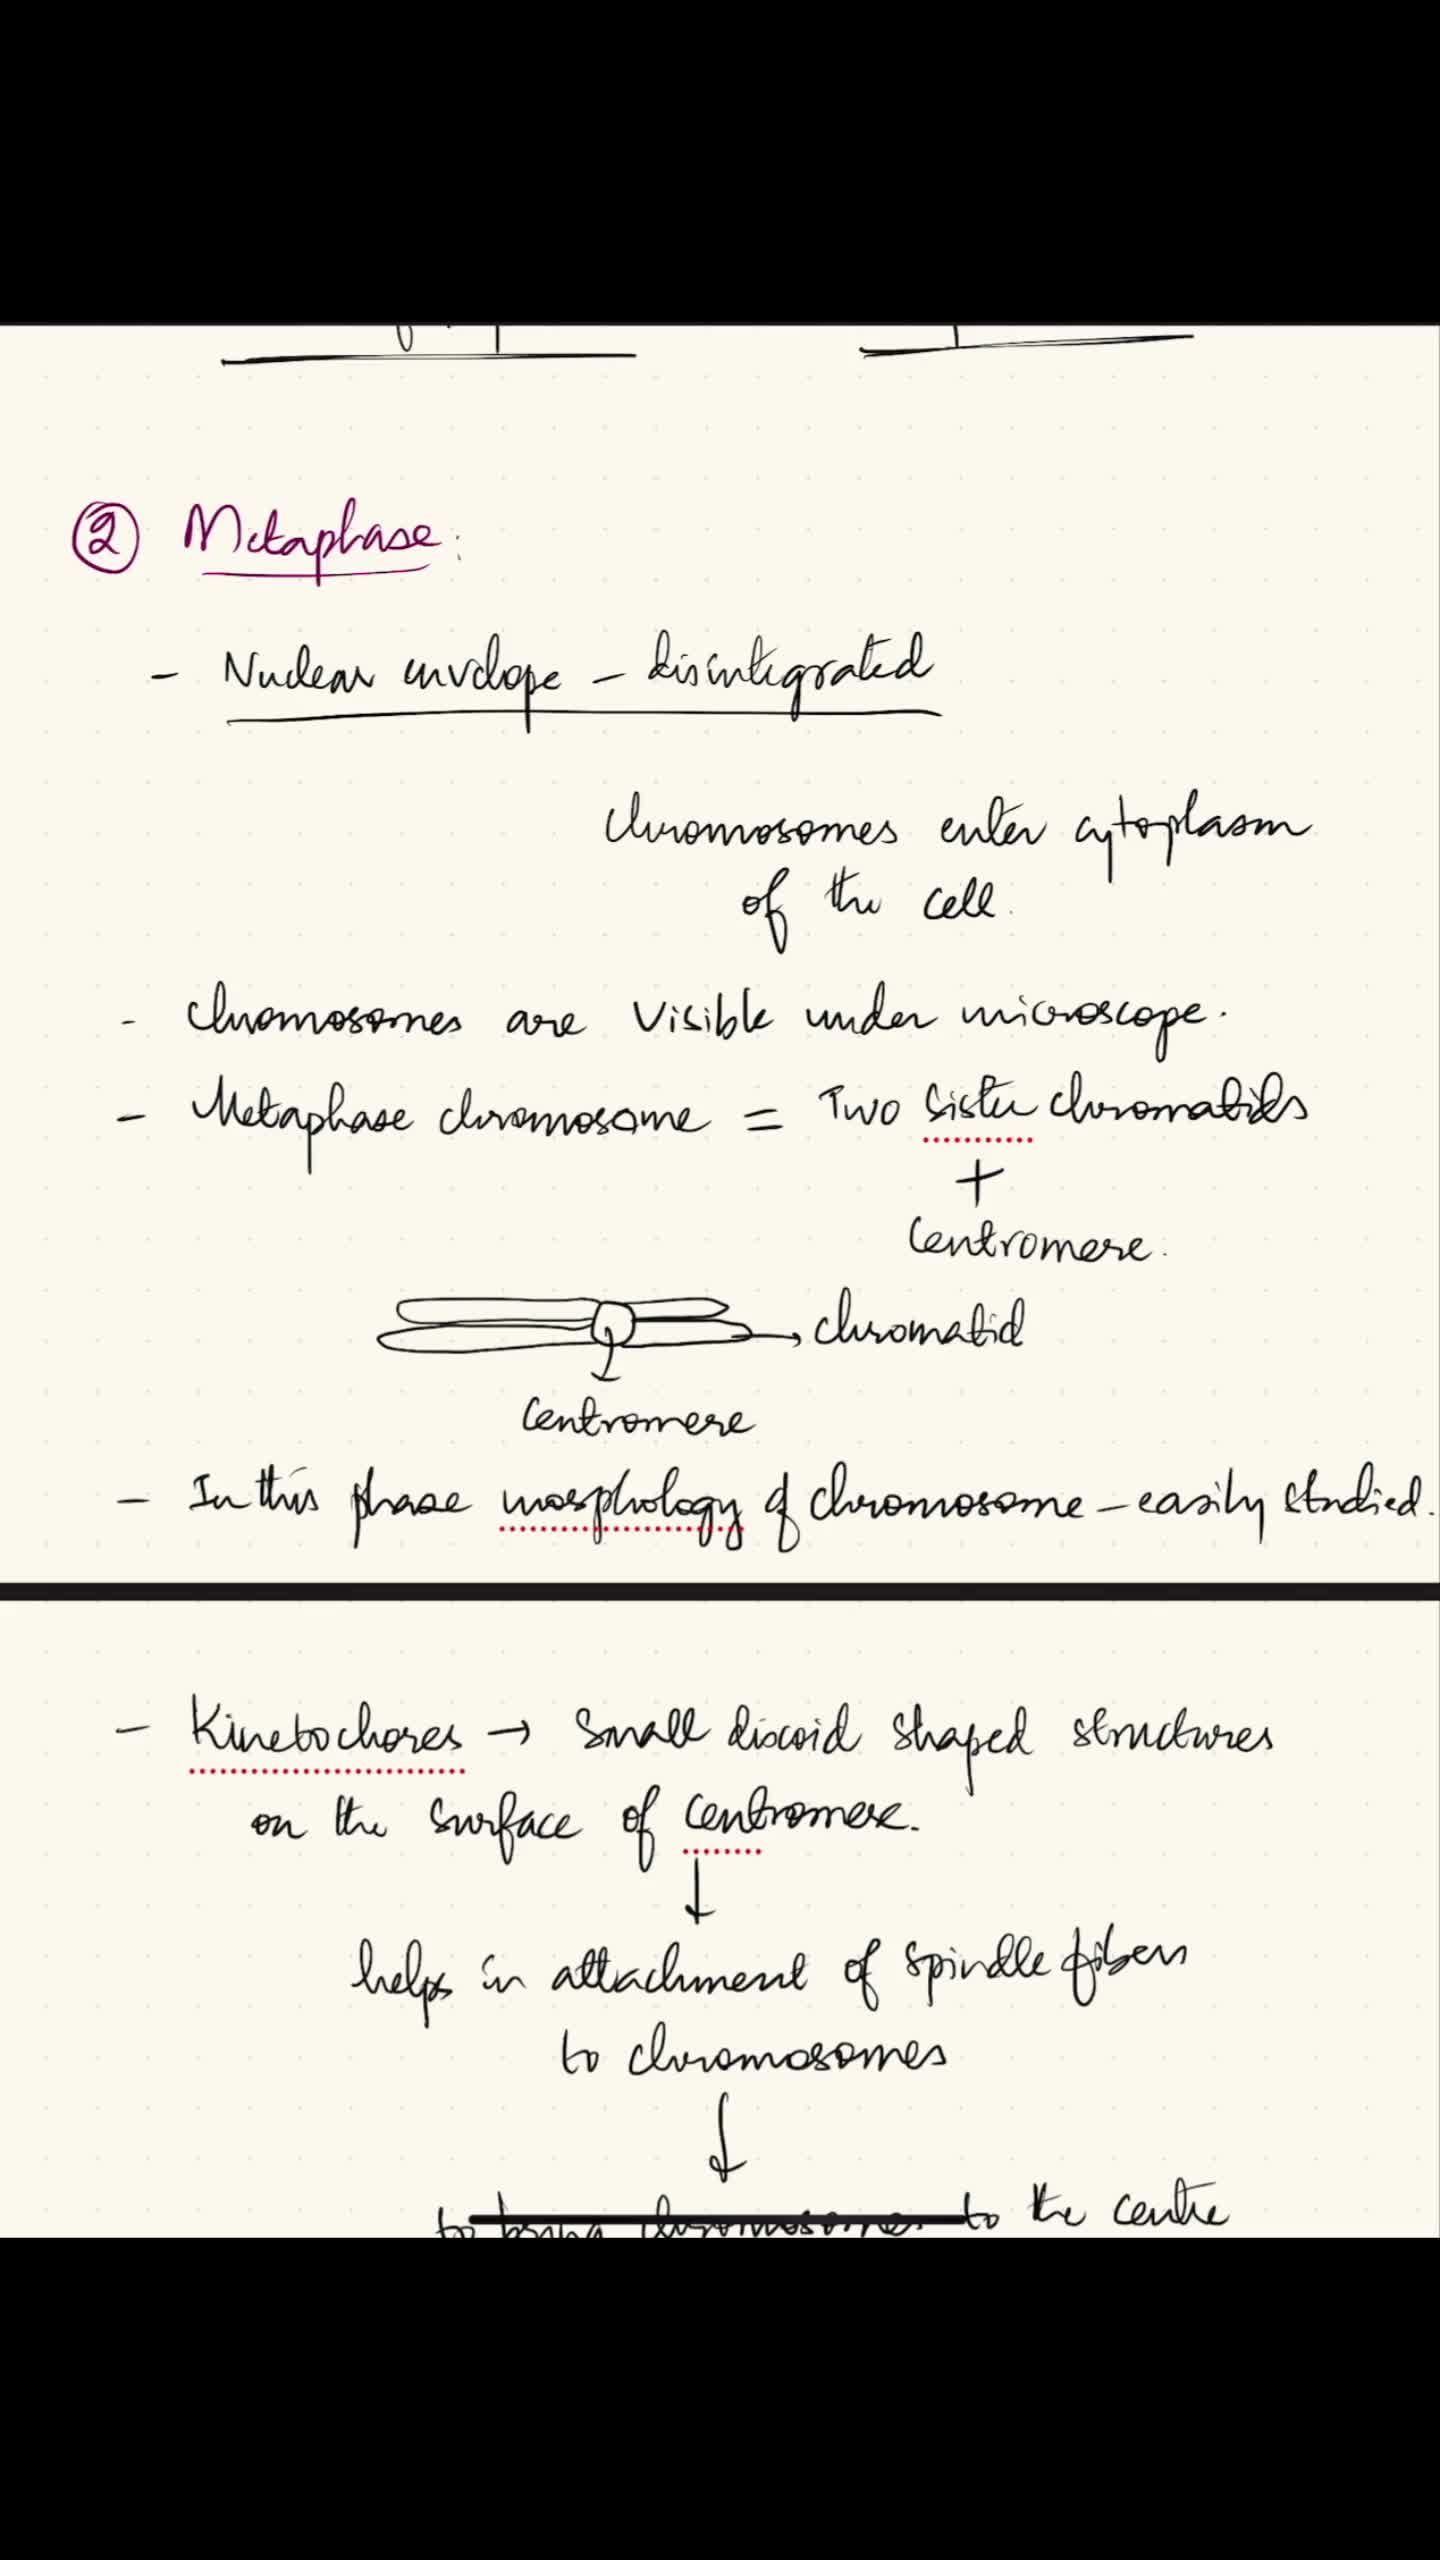 ② Metaphase:
- Nuclear envelope - disintegrated
Chromosomes enter cytoplasm
of the cell.
- Chromosomes are visible under microscope.
- Metaphase chromosome = Two sister chromatids
+
Centromere.
→ chromatid
Centromere
- In this phase morphology of chromosome - easily studied.
- Kinetochores → Small discoid shaped structures
on the surface of centromere.
↓
helps in attachment of spindle fibers
to chromosomes
↓
to bring chromosomes to the centre